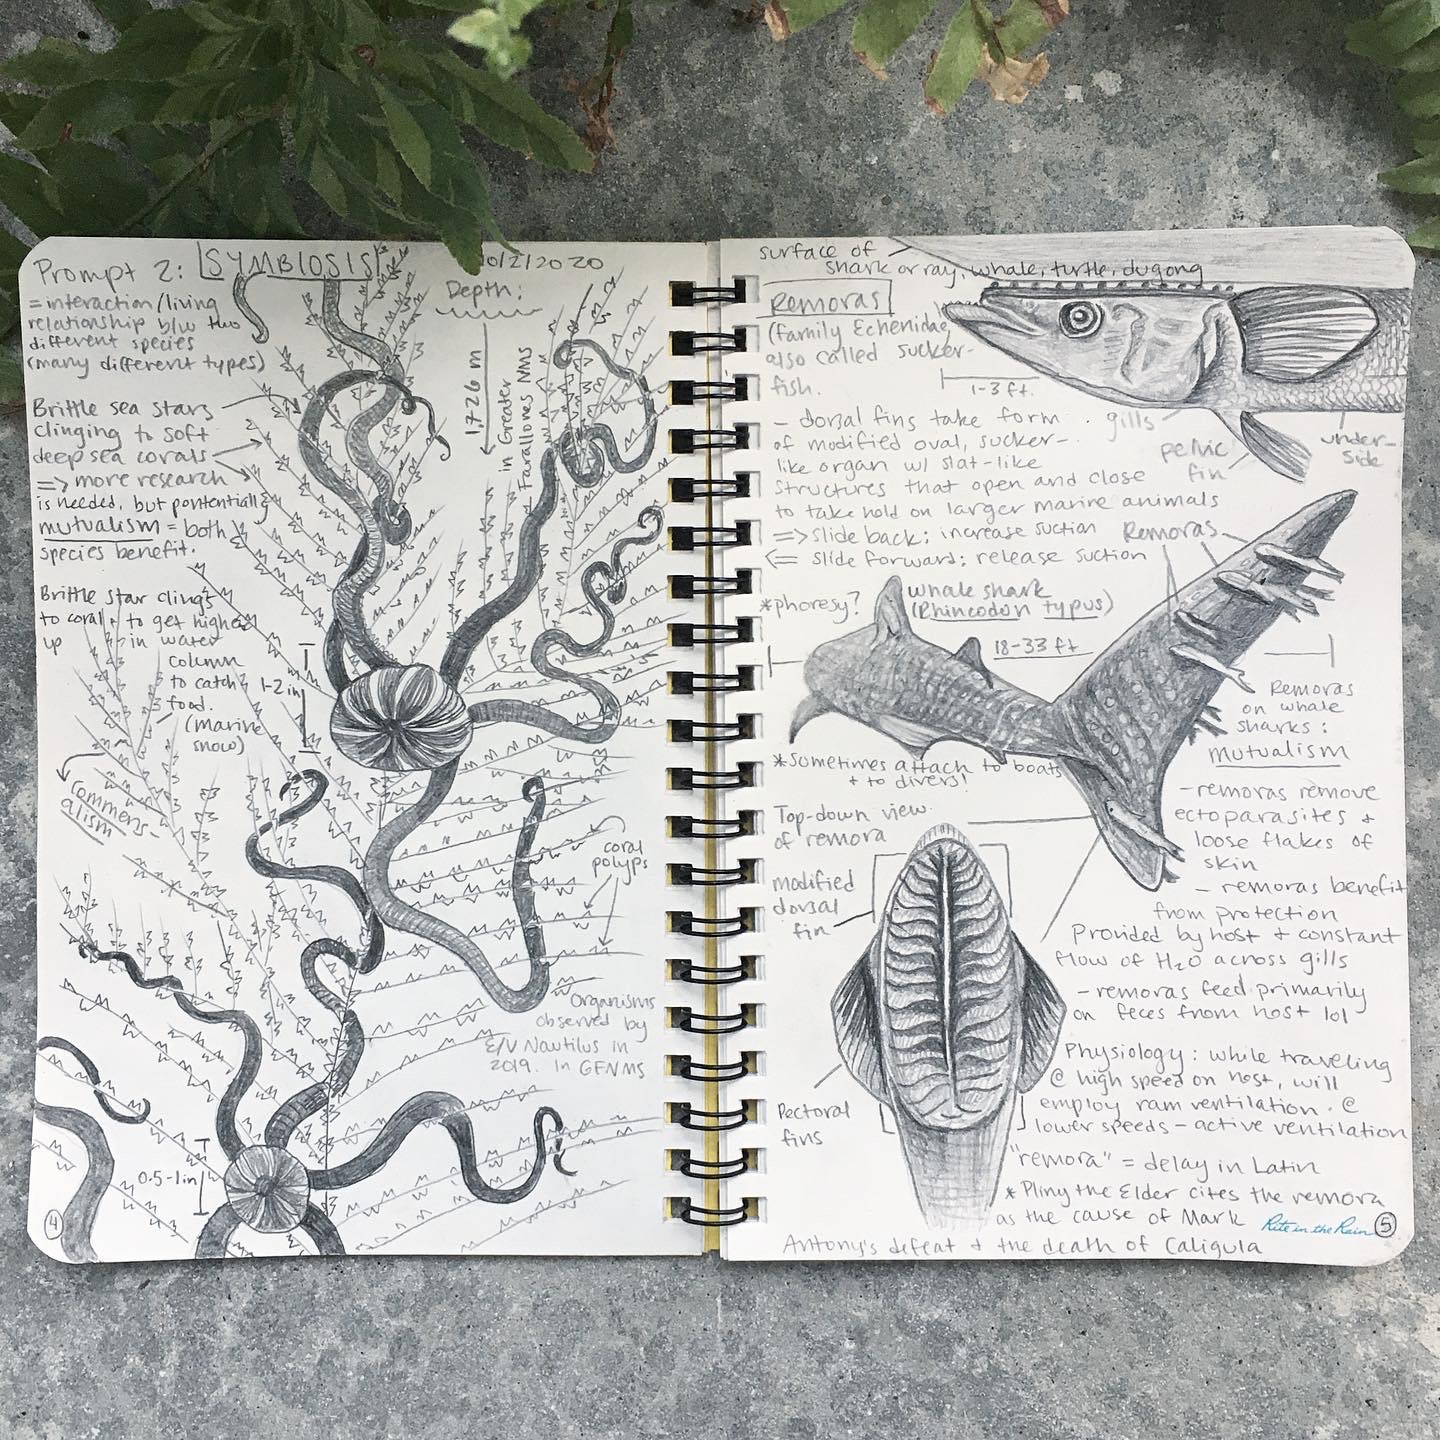 Prompt 2: SYMBIOSIS
10/2/2020
= interaction/living
relationship b/w two
different species
(many different types)
Brittle sea stars
clinging to soft
deep sea corals
=> more research
is needed, but pontentially
mutualism = both
species benefit.
Brittle star clings
to coral + to get higher
up in water
column
to catch
food.
(marine
snow)
commens-
alism
Depth:
1,726 m
in Greater
Farallones NMS
1-2 in
coral
polyps
Organisms
observed by
E/V Nautilus in
2019. In GFNMS
0.5-1in
4
surface of
shark or ray, whale, turtle, dugong
Remoras
(family Echenidae,
also called sucker-
fish.
1-3 ft.
gills
pelvic
fin
under-
side
- dorsal fins take form
of modified oval, sucker-
like organ w/ slat-like
structures that open and close
to take hold on larger marine animals
=> slide back: increase suction
<= slide forward: release suction
Remoras
*phoresy?
whale shark
(Rhincodon typus)
18-33 ft
*sometimes attach to boats
+ to divers!
Remoras
on whale
sharks:
mutualism
- remoras remove
ectoparasites +
loose flakes of
skin
- remoras benefit
from protection
provided by host + constant
flow of H2O across gills
- remoras feed primarily
on feces from host lol
Top-down view
of remora
modified
dorsal
fin
Pectoral
fins
Physiology: while traveling
@ high speed on host, will
employ ram ventilation. @
lower speeds - active ventilation
"remora" = delay in Latin
* Pliny the Elder cites the remora
as the cause of Mark
Antony's defeat + the death of Caligula
Rite in the Rain
5